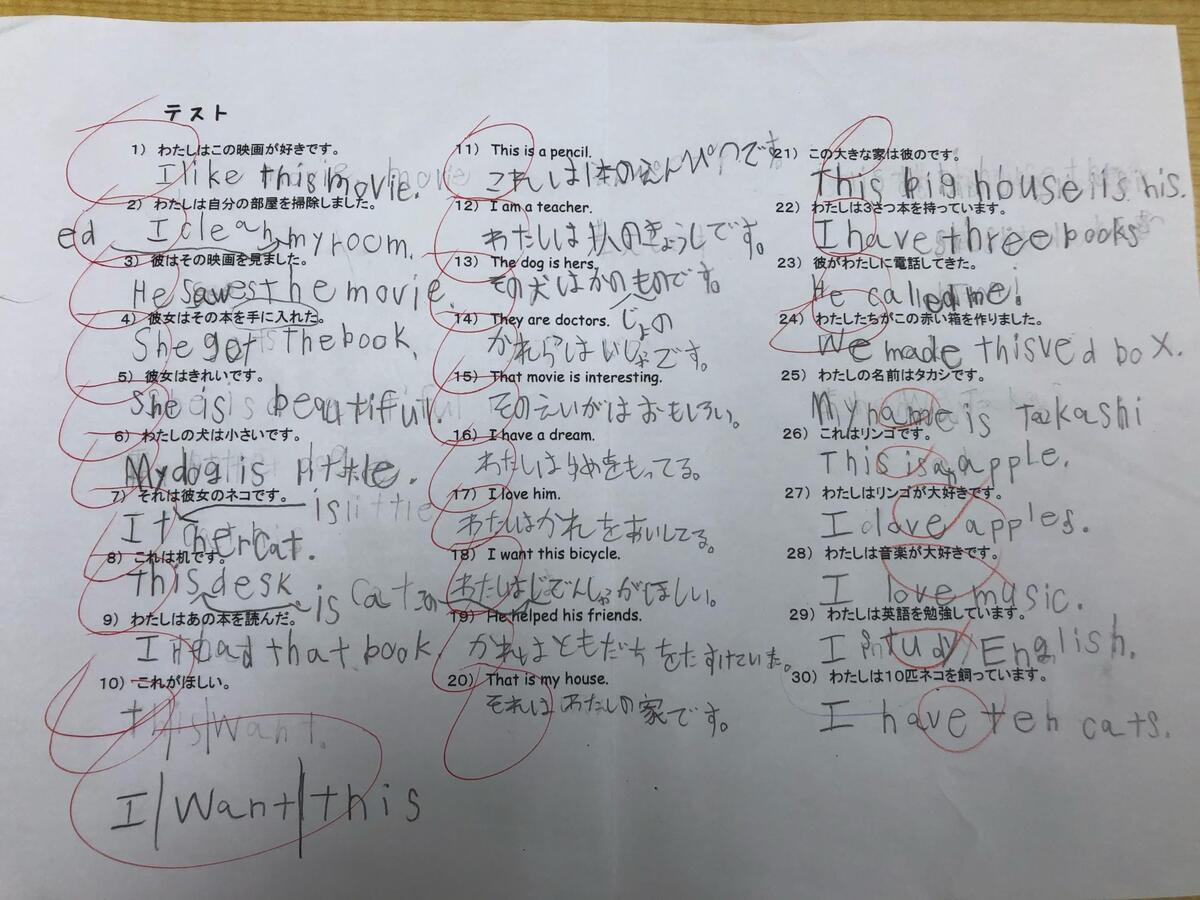 テスト
1) わたしはこの映画が好きです。
I like this movie.
2) わたしは自分の部屋を掃除しました。
ed I clean my room.
3) 彼はその映画を見ました。
He saw the movie.
4) 彼女はその本を手に入れた。
She got the book.
5) 彼女はきれいです。
She is beautiful.
6) わたしの犬は小さいです。
My dog is little.
7) それは彼女のネコです。
It is her cat.
8) これは机です。
this desk is
9) わたしはあの本を読んだ。
I read that book.
10) これがほしい。
this want.
I want this
11) This is a pencil.
これは1本のえんぴつです
12) I am a teacher.
わたしは1人のきょうしです。
13) The dog is hers.
その犬はかのものです。
じょの
14) They are doctors.
かれらはいしゃです。
15) That movie is interesting.
そのえいがはおもしろい。
16) I have a dream.
わたしはゆめをもってる。
17) I love him.
わたしはかれをあいしてる。
18) I want this bicycle.
わたしはじてんしゃがほしい。
この
19) He helped his friends.
かれはともだちをたすけていた。
20) That is my house.
それはわたしの家です。
21) この大きな家は彼のです。
This big house is his.
22) わたしは3さつ本を持っています。
I have three books
23) 彼がわたしに電話してきた。
He called me.
24) わたしたちがこの赤い箱を作りました。
We made this red box.
25) わたしの名前はタカシです。
My name is Takashi
26) これはリンゴです。
This is an apple.
27) わたしはリンゴが大好きです。
I love apples.
28) わたしは音楽が大好きです。
I love music.
29) わたしは英語を勉強しています。
I study English.
30) わたしは10匹ネコを飼っています。
I have ten cats.